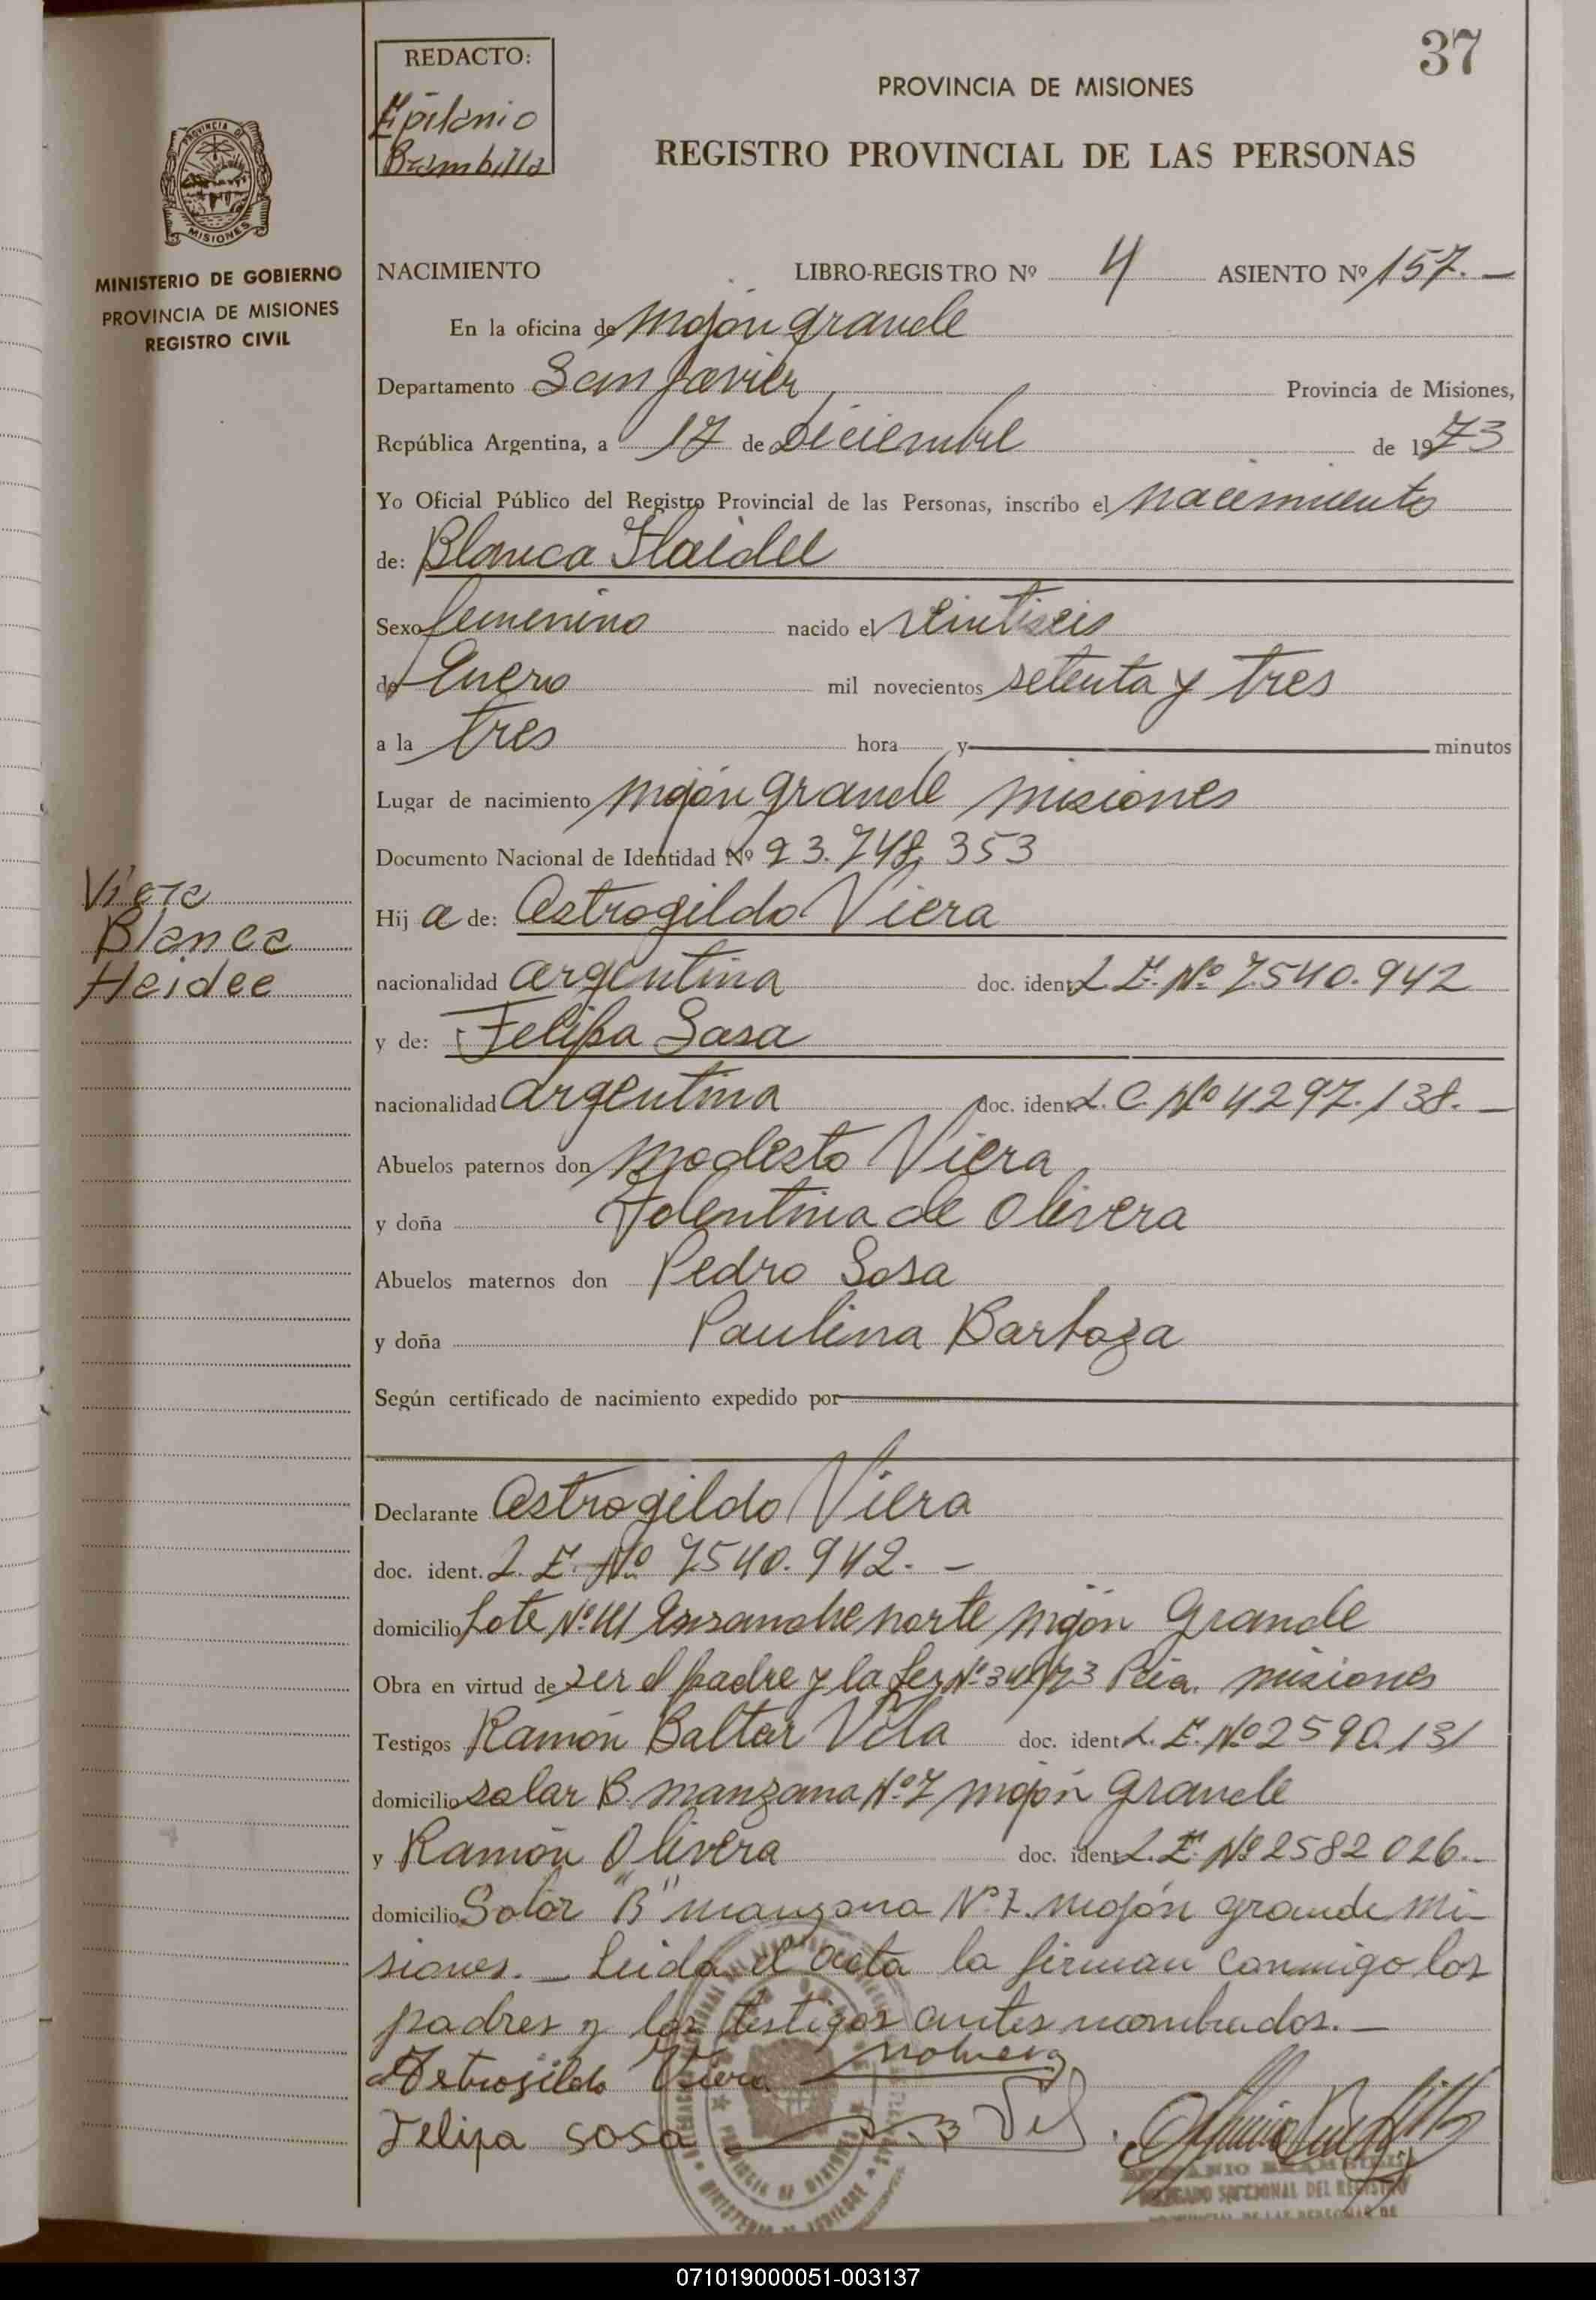 37
REDACTO:
Epifanio
Brambilla
PROVINCIA DE MISIONES
REGISTRO PROVINCIAL DE LAS PERSONAS
PROVINCIA DE
MISIONES
MINISTERIO DE GOBIERNO
PROVINCIA DE MISIONES
REGISTRO CIVIL
NACIMIENTO LIBRO-REGISTRO Nº 4 ASIENTO Nº 157.-
En la oficina de Mojón grande
Departamento San Javier, Provincia de Misiones,
República Argentina, a 17 de Diciembre de 1973
Yo Oficial Público del Registro Provincial de las Personas, inscribo el nacimiento
de: Blanca Haidee
Sexo femenino nacido el veintiseis
de Enero mil novecientos setenta y tres
a la tres hora y minutos
Lugar de nacimiento Mojón grande Misiones
Documento Nacional de Identidad Nº 23.748.353
Viera
Blanca
Heidee
Hij a de: Astrogildo Viera
nacionalidad argentina doc. ident. L E. Nº 7.540.942
y de: Felipa Sosa
nacionalidad argentina doc. ident. L. C. Nº 4.297.138.-
Abuelos paternos don Modesto Viera
y doña Tolentina de Olivera
Abuelos maternos don Pedro Sosa
y doña Paulina Barboza
Según certificado de nacimiento expedido por
Declarante Astrogildo Viera
doc. ident. L. E. Nº 7.540.942.-
domicilio Lote Nº 141 Ensanche norte Mojón Grande
Obra en virtud de ser el padre y la Ley Nº 340/73 Pcia. Misiones
Testigos Ramón Baltar Vila doc. ident. L. E. Nº 2590.131
domicilio solar B. manzana Nº 7 Mojón Grande
y Ramón Olivera doc. ident. L. E. Nº 2582026.-
domicilio Solar "B" manzana Nº 7. Mojón grande Mi-
siones.- Leida el acta la firman conmigo los
padres y los testigos antes nombrados.-
Astrogildo Viera
Felipa sosa
EPIFANIO BRAMBILLA
DELEGADO SECCIONAL DEL REGISTRO
PROVINCIAL DE LAS PERSONAS DE
071019000051-003137